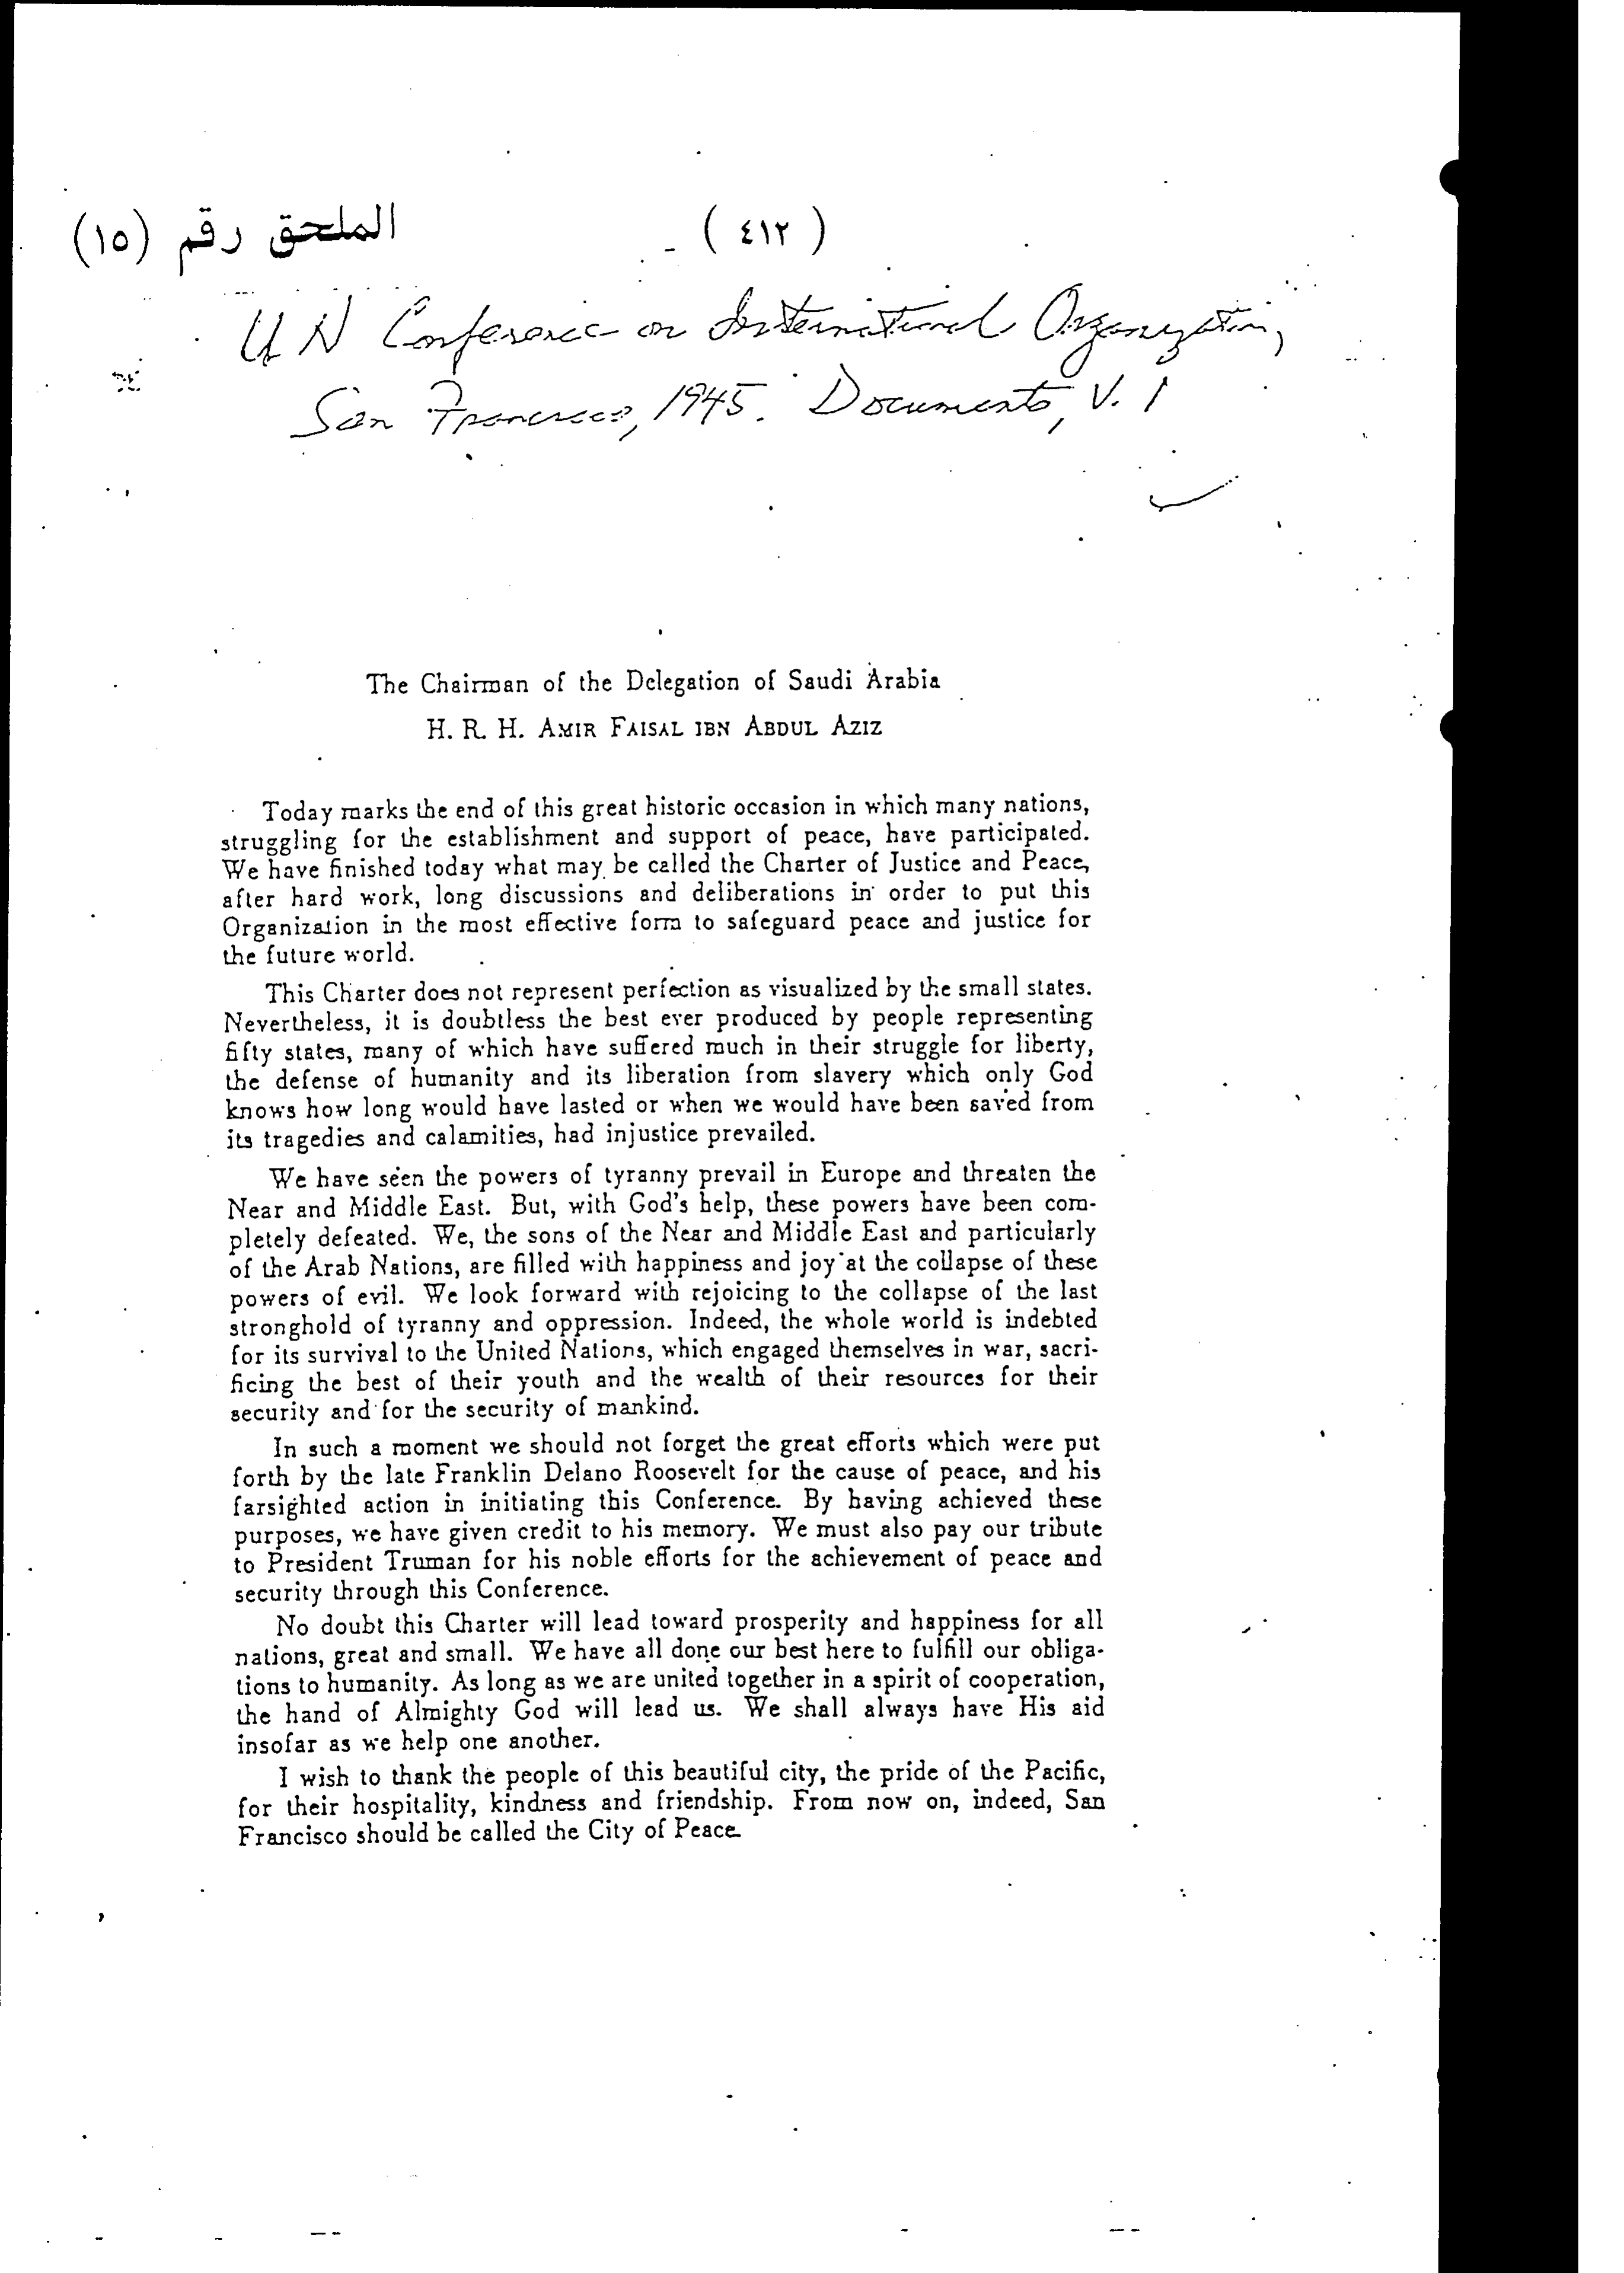 الملحق رقم (١٥)
( ٤١٢ )
UN Conference on International Organization,
San Francisco, 1945. Documents, V. 1
The Chairman of the Delegation of Saudi Arabia
H. R. H. AMIR FAISAL IBN ABDUL AZIZ
Today marks the end of this great historic occasion in which many nations,
struggling for the establishment and support of peace, have participated.
We have finished today what may be called the Charter of Justice and Peace,
after hard work, long discussions and deliberations in order to put this
Organization in the most effective form to safeguard peace and justice for
the future world.
This Charter does not represent perfection as visualized by the small states.
Nevertheless, it is doubtless the best ever produced by people representing
fifty states, many of which have suffered much in their struggle for liberty,
the defense of humanity and its liberation from slavery which only God
knows how long would have lasted or when we would have been saved from
its tragedies and calamities, had injustice prevailed.
We have seen the powers of tyranny prevail in Europe and threaten the
Near and Middle East. But, with God's help, these powers have been com-
pletely defeated. We, the sons of the Near and Middle East and particularly
of the Arab Nations, are filled with happiness and joy at the collapse of these
powers of evil. We look forward with rejoicing to the collapse of the last
stronghold of tyranny and oppression. Indeed, the whole world is indebted
for its survival to the United Nations, which engaged themselves in war, sacri-
ficing the best of their youth and the wealth of their resources for their
security and for the security of mankind.
In such a moment we should not forget the great efforts which were put
forth by the late Franklin Delano Roosevelt for the cause of peace, and his
farsighted action in initiating this Conference. By having achieved these
purposes, we have given credit to his memory. We must also pay our tribute
to President Truman for his noble efforts for the achievement of peace and
security through this Conference.
No doubt this Charter will lead toward prosperity and happiness for all
nations, great and small. We have all done our best here to fulfill our obliga-
tions to humanity. As long as we are united together in a spirit of cooperation,
the hand of Almighty God will lead us. We shall always have His aid
insofar as we help one another.
I wish to thank the people of this beautiful city, the pride of the Pacific,
for their hospitality, kindness and friendship. From now on, indeed, San
Francisco should be called the City of Peace.